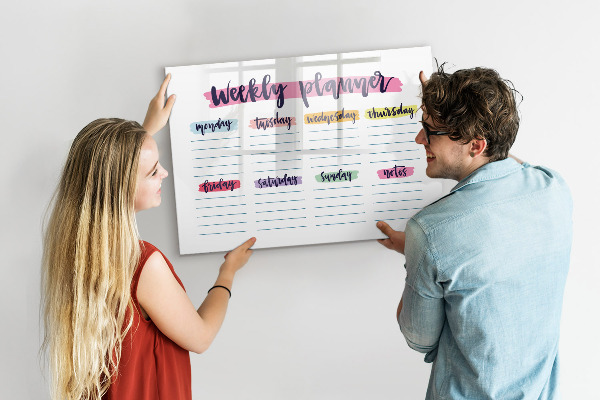 weekly planner
monday tuesday wednesday thursday
friday saturday sunday notes